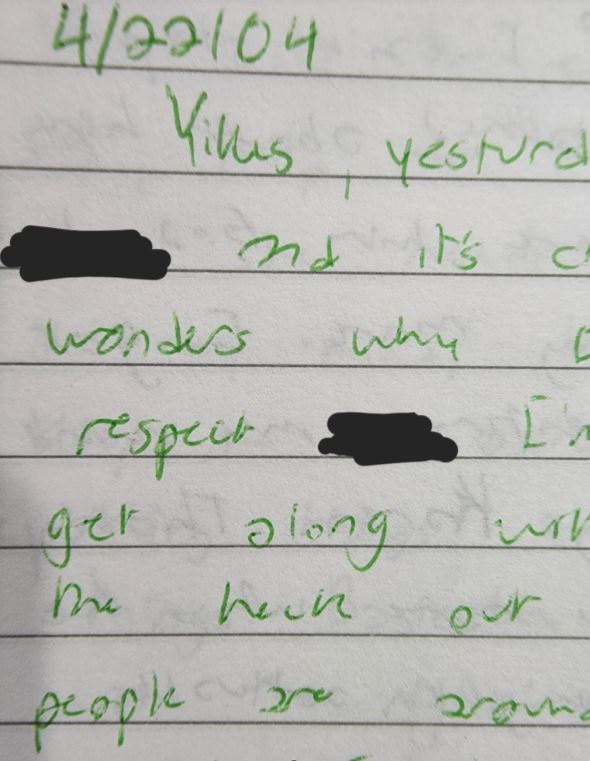 4/22/04
Yikes, yesturd
and it's c
wonders why I
respect I'm
get along with
the heck out
people are around